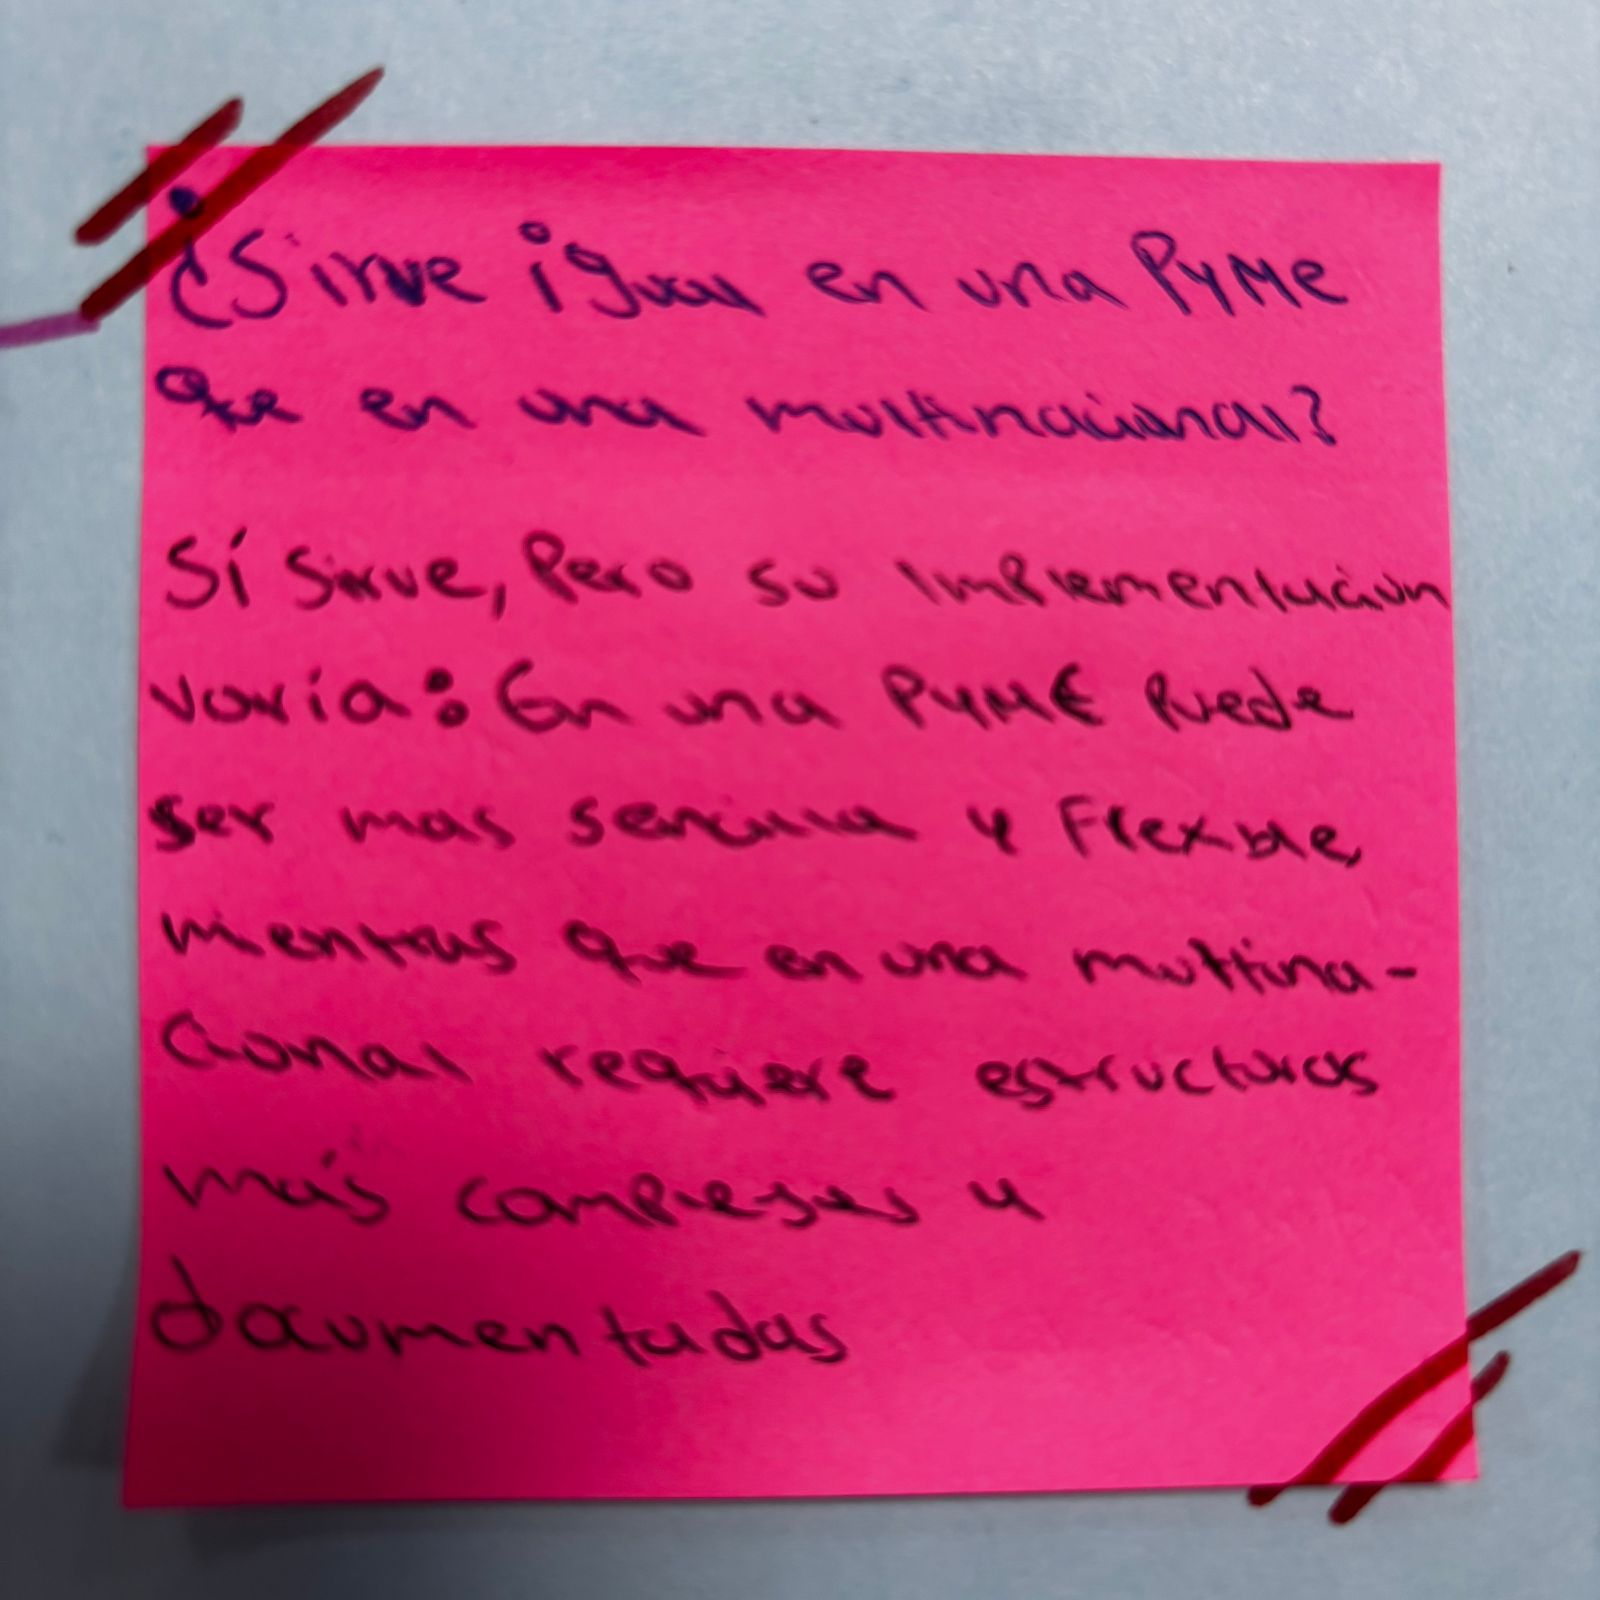 ¿Sirve igual en una PyMe
que en una multinacional?
Sí sirve, pero su implementación
varía: En una PYME puede
ser mas sencilla y flexible,
mientras que en una multina-
cional requiere estructuras
más complejas y
documentadas